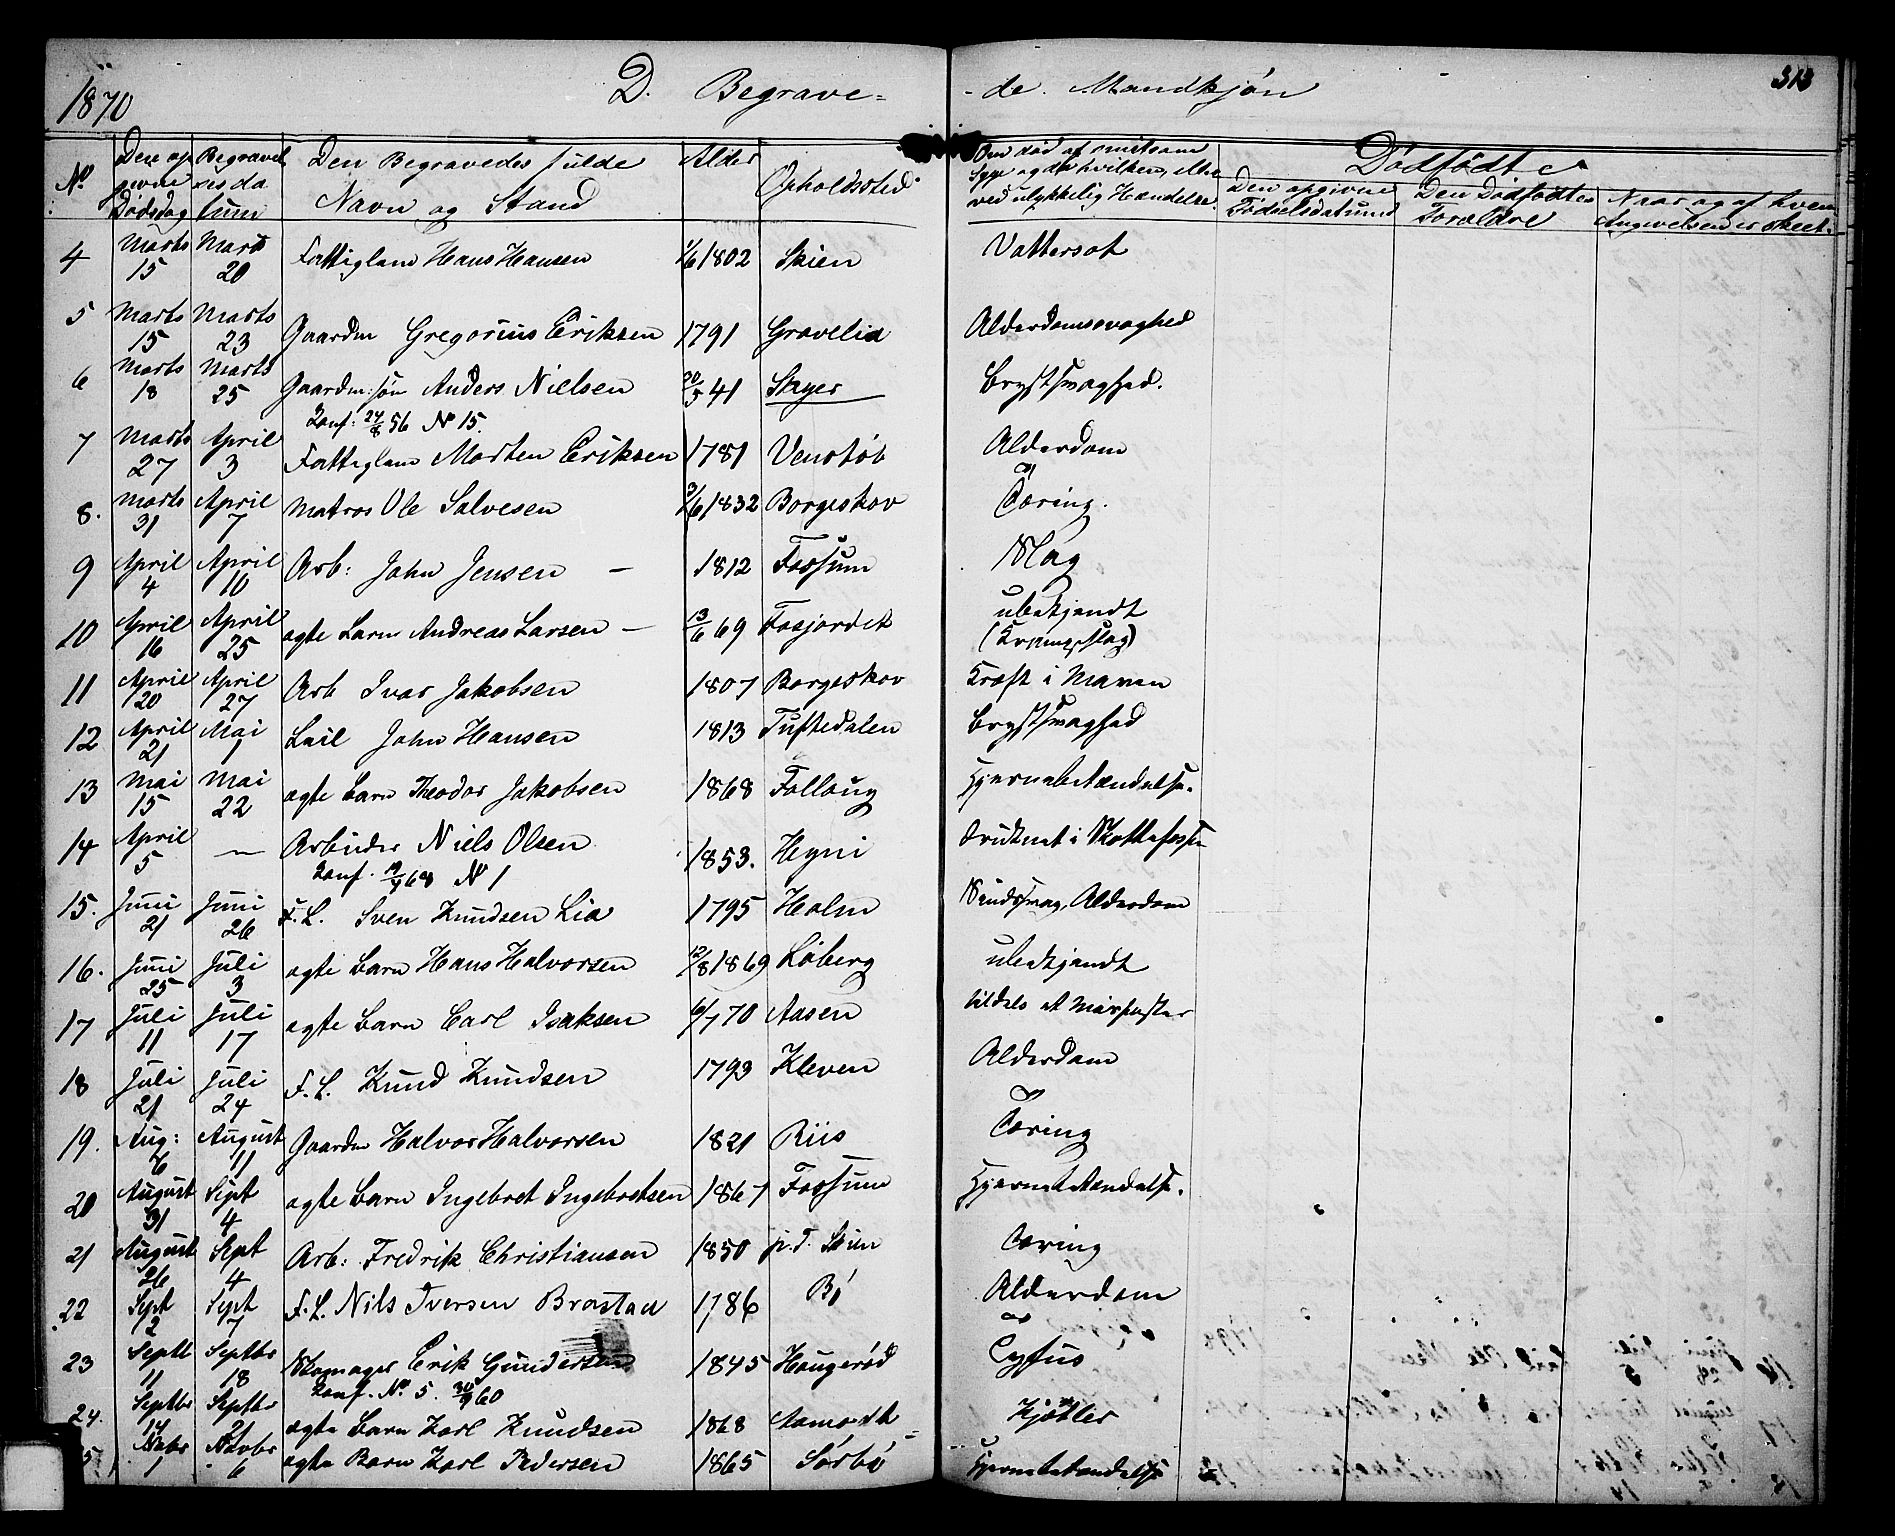 1870 D. Begrave= -de. Mandkjøn 313
No Den op givne Dødsdag Begravel sesda tum Den Begravedes fulde Navn og Stand Alder Opholdssted Om død af smitsom Syge og da hvilken, eller ved ulykkelig Hændelse. Dødfødte
Den opgivne Fødselsdatum Den Dødfødtes Forældre Naar og af hvem Angivelsen er skeet.
4 Marts 15 Marts 20 Fattiglem Hans Hansen 1/6 1802 Skien Vattersot
5 Marts 15 Marts 23 Gaardm Gregorius Eriksen 1791 Gravelia Alderdomssvaghed
6 Marts 18 Marts 25 Gaardm:søn Anders Nielsen 20/5 41 Skyer Brystsvaghed.
Konf: 24/8 56 No 15.
7 Marts 27 April 3 Fattiglem Morten Eriksen 1781 Venstøb Alderdom
8. Marts 31 April 7 Matros Ole Salvesen 3/6 1832 Borgeskov Tæring.
9 April 4 April 10 Arb: John Jensen – 1812 Fossum Slag
10 April 16 April 25 ægte Barn Andreas Larsen – 13/6 69 Fosjordet ubekjendt
(Krampeslag)
11 April 20 April 27 Arb Ivar Jakobsen 1807 Borgeskov Kræft i Maven
12 April 21 Mai 1 Leil John Hansen 1813 Tuftedalen Brystsvaghed
13 Mai 15 Mai 22 ægte Barn Theodor Jakobsen 1868 Follaug Hjernebetændelse.
14 April 5 — Arbeider Niels Olsen 1853. Hyni druknet i Skottefossen
Konf. No 1
15. Juni 21 Juni 26 F.L. Sven Knudsen Lia 1795 Holm Sindssvag, Alderdom
16. Juni 25 Juli 3 ægte Barn Hans Halvorsen 12/8 1869 Løberg ubekjendt
17 Juli 11 Juli 17 ægte Barn Carl Isaksen 6/7 70 Aasen
18 Juli 21 Juli 24 F.L. Knud Knudsen 1793 Kleven Alderdom
19. Aug: 6 August 11 Gaardm Halvor Halvorsen 1821 Riis Tæring
20 August 31 Sept 4 ægte Barn Ingebret Ingebretsen 1867 Fossum Hjernebetændelse.
21 August 26 Sept 4 Arb: Fredrik Christiansen 1850 p.T. Skien Tæring
22 Sept 2 Sept 7 F.L. Nils Iversen Brostad 1786 Bø Alderdom
23 Septb 11 Septbr 18 Skomager Erik Gundersen 1845 Haugerød Tyfus
Konf. No 5. 30/9 60
24. Septbr 14 Septbr 21 ægte Barn Karl Knudsen 1868 Aamodt Kjørtler
5 Novbr 1 Novbr 6 ægte Barn Karl Pedersen 1865 Sørbø Hjernebetændelse